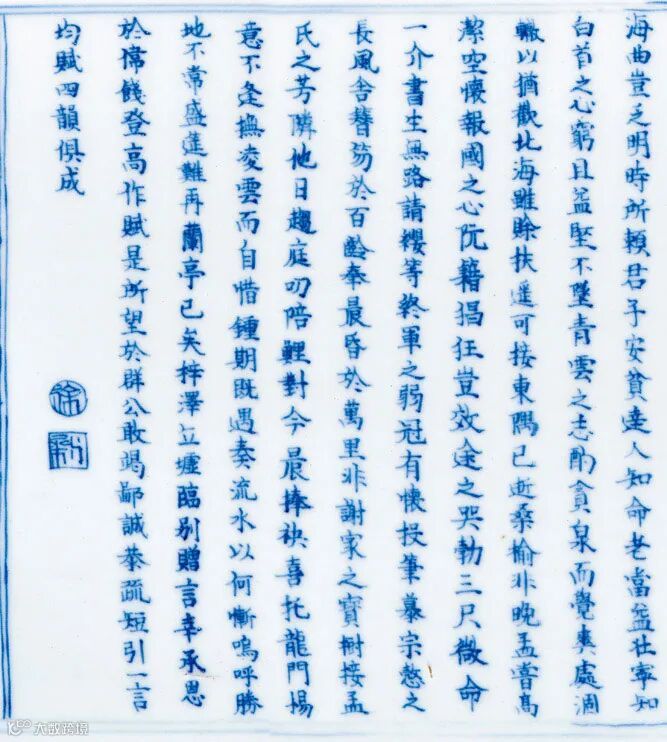 海曲豈乏明時所賴君子安貧達人知命老當益壯寧知
白首之心窮且益堅不墜青雲之志酌貪泉而覺爽處涸
轍以猶歡北海雖賒扶遥可接東隅已逝桑榆非晚孟嘗高
潔空懷報國之心阮籍猖狂豈效途之哭勃三尺微命
一介書生無路請纓等終軍之弱冠有懷投筆慕宗慤之
長風舍簪笏於百齡奉晨昏於萬里非謝家之寶樹接孟
氏之芳隣他日趨庭叨陪鯉對今晨捧袂喜托龍門揚
意不逢撫凌雲而自惜鍾期既遇奏流水以何慚嗚呼勝
地不常盛筵難再蘭亭已矣梓澤丘墟臨別贈言幸承恩
於席餞登高作賦是所望於群公敢竭鄙誠恭疏短引一言
均賦四韻俱成
徐
大数跨境